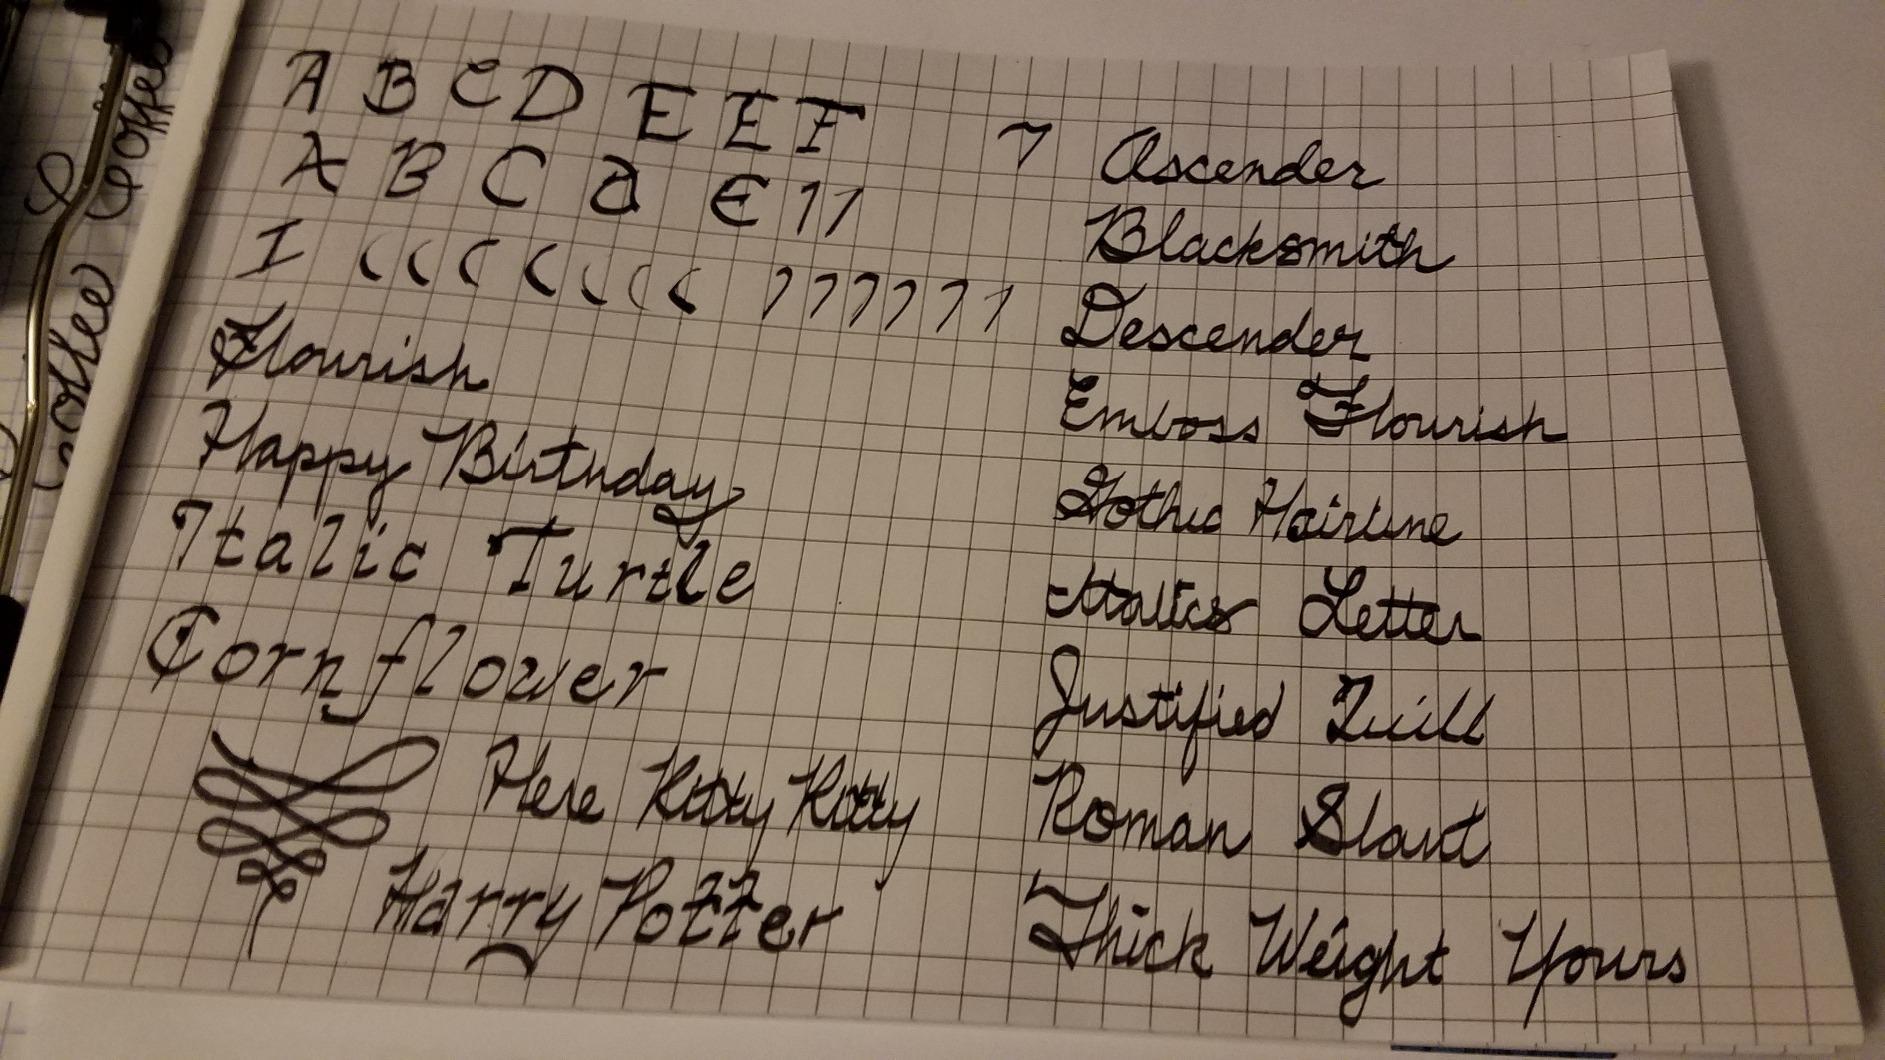 A B C D E E F
A B C a E 1 1
I ( ( ( ( ( ( ( 7 7 7 7 7 1
Flourish
Happy Birthday
Italic Turtle
Cornflower
Here Kitty Kitty
Harry Potter
7 Ascender
Blacksmith
Descender
Emboss Flourish
Gothic Hairline
Italics Letter
Justified Quill
Roman Slant
Thick Weight Yours
Coffee
Coffee